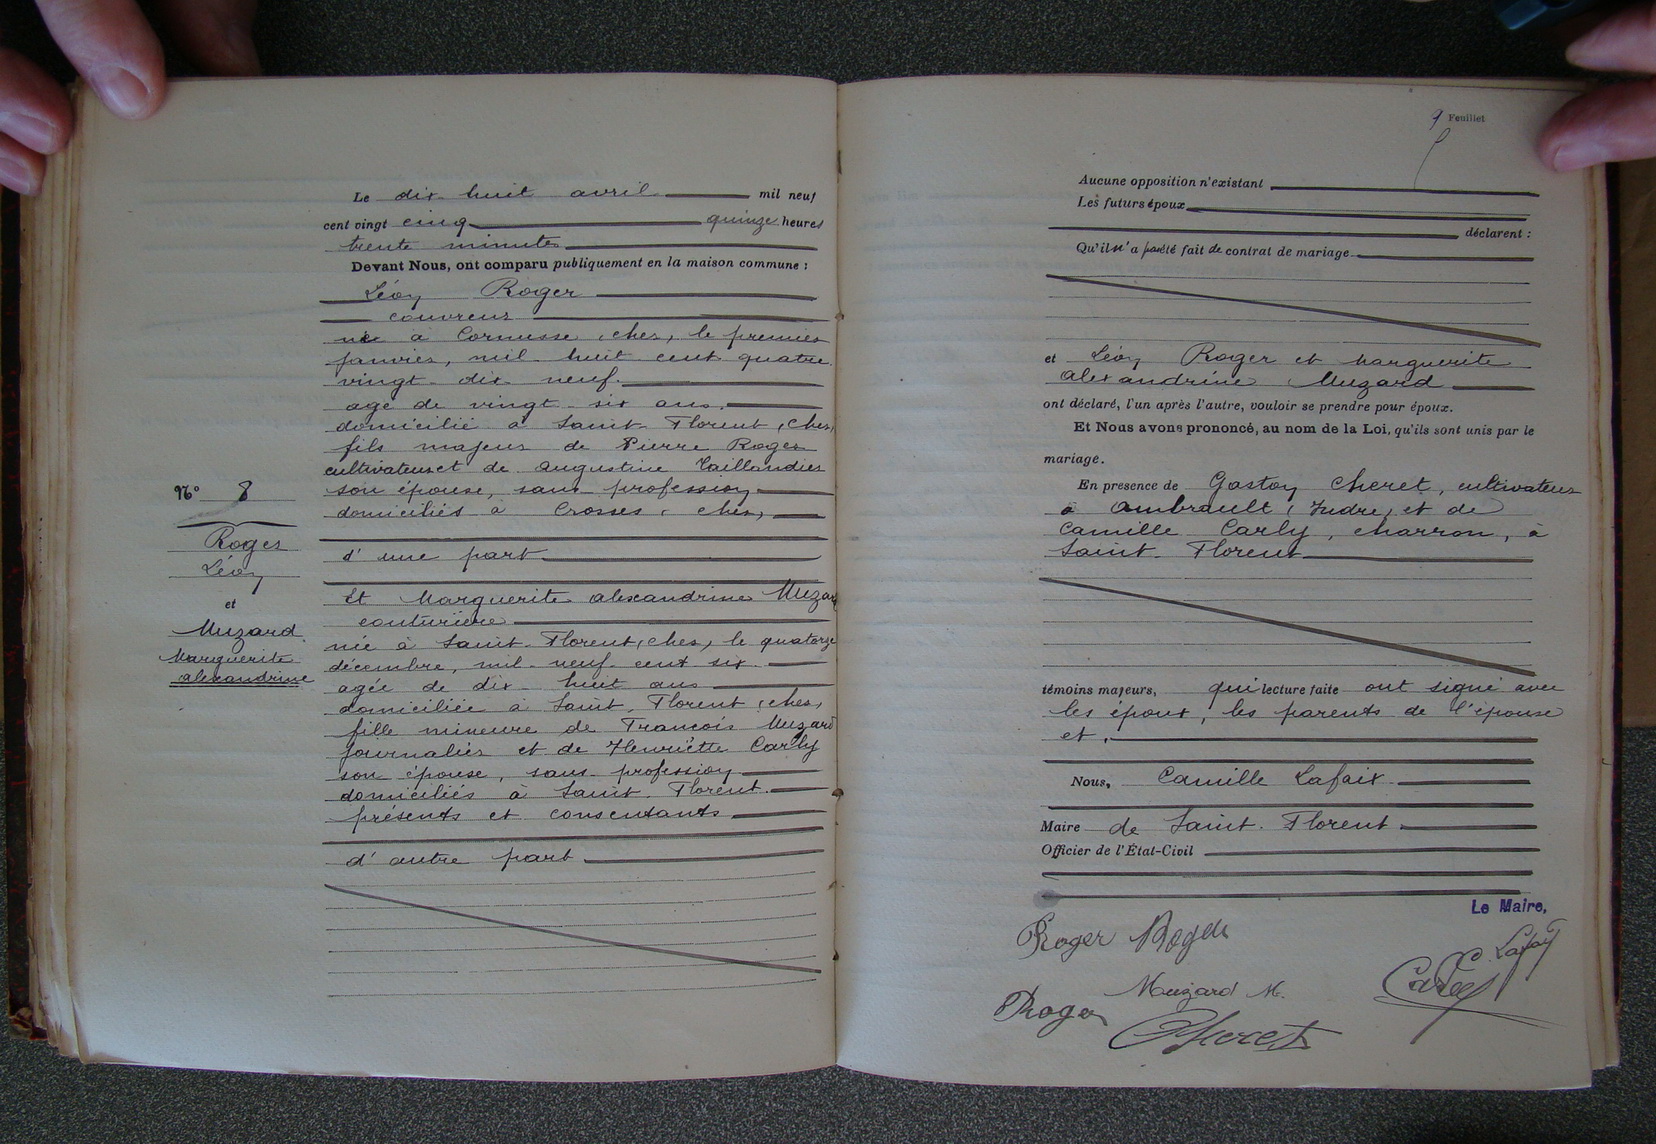 Le dix-huit avril mil neuf
cent vingt cinq quinze heures
trente minutes
Devant Nous, ont comparu publiquement en la maison commune :
Léon Roger
couvreur
né à Cornusse (Cher) le premier
janvier, mil huit cent quatre
vingt-dix neuf.
agé de vingt-six ans.
domicilié à Saint-Florent (Cher)
fils majeur de Pierre Roger
cultivateur et de Augustine Taillandier
son épouse, sans profession
domiciliés à Crosses (Cher)
d'une part
Et Marguerite Alexandrine Muzard
couturière
née à Saint-Florent (Cher) le quatorze
décembre, mil-neuf cent six
agée de dix-huit ans
domiciliée à Saint-Florent (Cher)
fille mineure de François Muzard
journalier et de Henriette Carly
son épouse, sans profession
domiciliés à Saint-Florent.
présents et consentants
d'autre part
N° 8
Roger
Léon
et
Muzard
Marguerite
Alexandrine
9 Feuillet
Aucune opposition n'existant
Les futurs époux
déclarent :
Qu'il n'a pas été fait de contrat de mariage
et Léon Roger et Marguerite
Alexandrine Muzard
ont déclaré, l'un après l'autre, vouloir se prendre pour époux.
Et Nous avons prononcé, au nom de la Loi, qu'ils sont unis par le
mariage.
En presence de Gaston Cheret, cultivateur
à Ambrault (Indre) et de
Camille Carly, charron, à
Saint-Florent
témoins majeurs, qui lecture faite ont signé avec
les époux, les parents de l'épouse
et,
Nous, Camille Lafaix
Maire de Saint-Florent
Officier de l'État-Civil
Le Maire,
Roger Roger
C. Lafaix
Carly
Muzard M.
Roger
Cheret